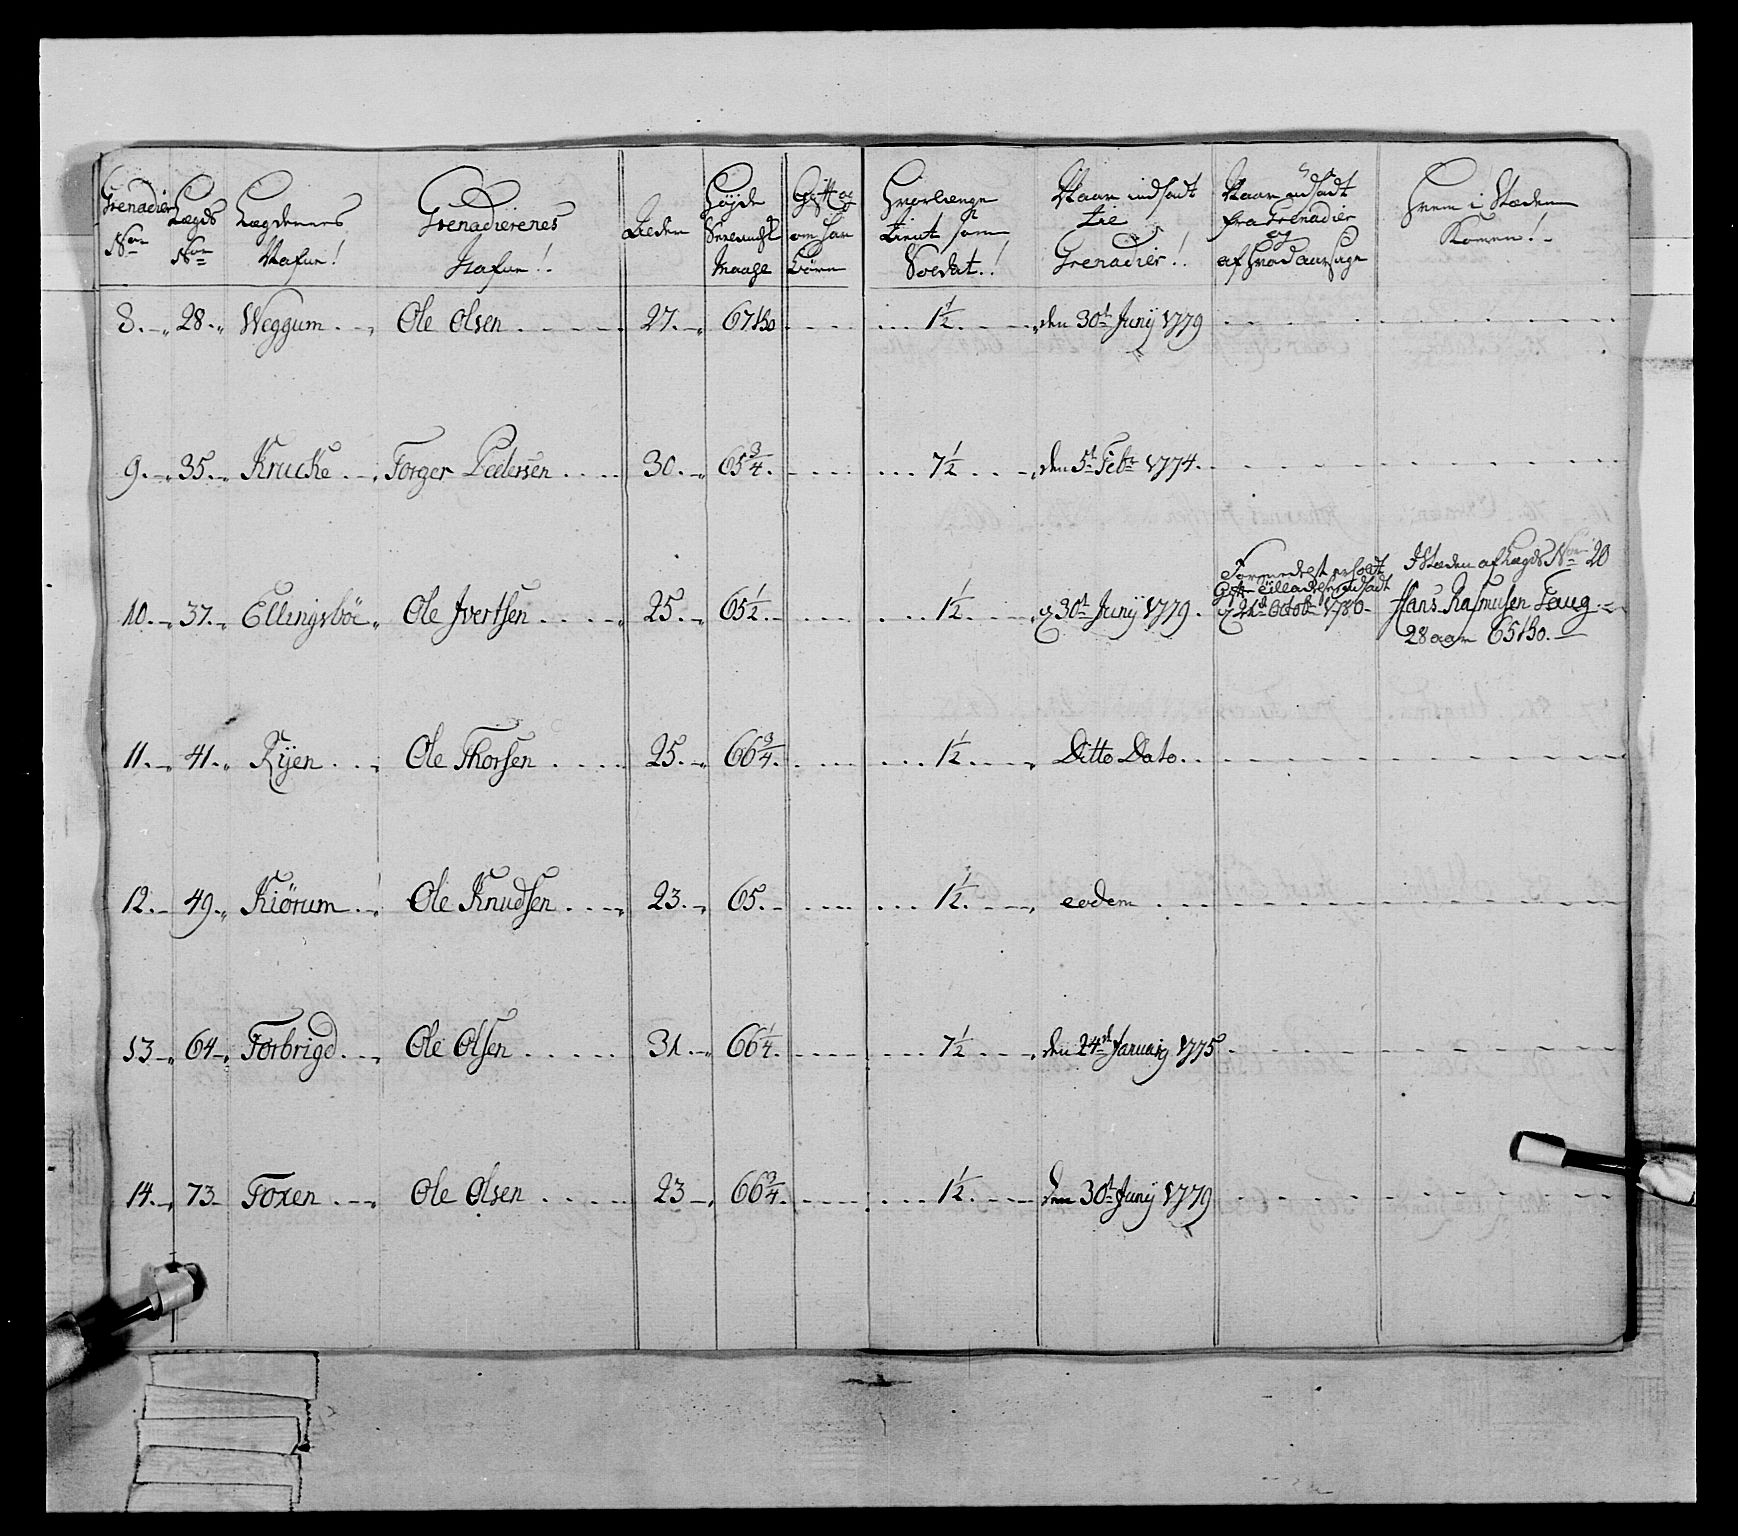 Grenadier Non
Lægds Non
Lægdernes Nafne!
Grenadierenes Nafne!
Alder
Høyde Maase
Gift og om har Børn
Hvorlænge tient som Soldat!
Naar indsadt til Grenadier!
Naar udsadt fra Grenadier og af hvad aarsage
Hvem i Stæden Komen!
8. 28. Weggum Ole Olsen 27. 67 1/2 den 30t Junij 1779
9. 35. Krucke Torger Pedersen 30. 65 3/4. 7 1/2 den 5t Febr 1774.
10. 37. Ellingsböe Ole Ivertsen 25. 65 1/2. 1 1/2 d 30t Junij 1779. Formedelst udsadt d 21d Octobr 1780 I Stæden af Lægds Non 20
Hans Rasmusen Haug
28 aar 65
11. 41. Ryen Ole Thorsen 25. 66 3/4. 1 1/2 Ditto Dato.
12. 49. Kiörum Ole Knudsen 23. 65. 1 1/2. eodem
13 64 Forbrigd Ole Olsen 31. 66 1/4. 7 1/2 den 24d Januarij 1775
14. 73 Foxen Ole Olsen 23 66 3/4. 1 1/2. den 30t Junij 1779